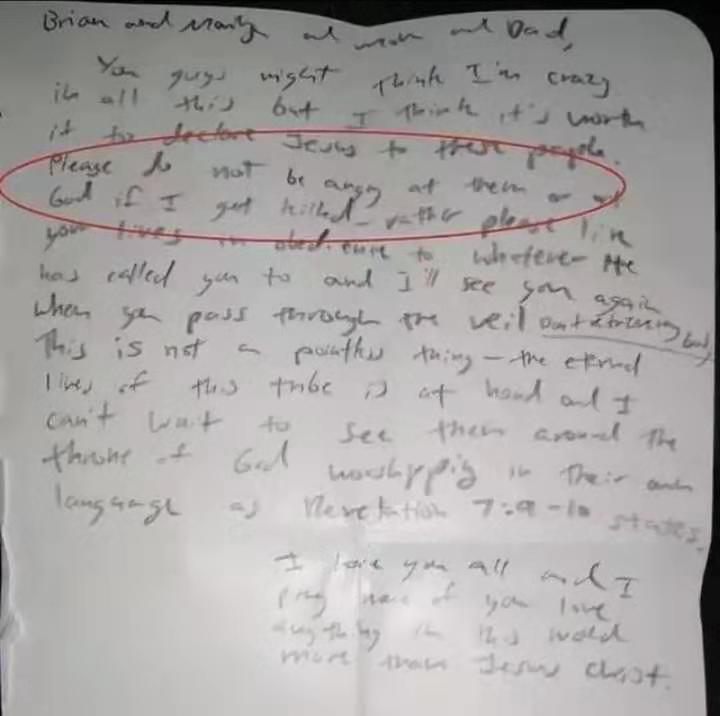 Brian and Marilyn and mom and Dad,
You guys might think I'm crazy
in all this but I think it's worth
it to declare Jesus to these people.
Please do not be angry at them or at
God if I get killed - rather please live
your lives in obedience to whatever He
has called you to and I'll see you again
when you pass through the veil
This is not a pointless thing - the eternal
lives of this tribe is at hand and I
can't wait to see them around the
throne of God worshipping in their own
language as Revelation 7:9-10 states.
I love you all and I
pray none of you love
anything in this world
more than Jesus Christ.